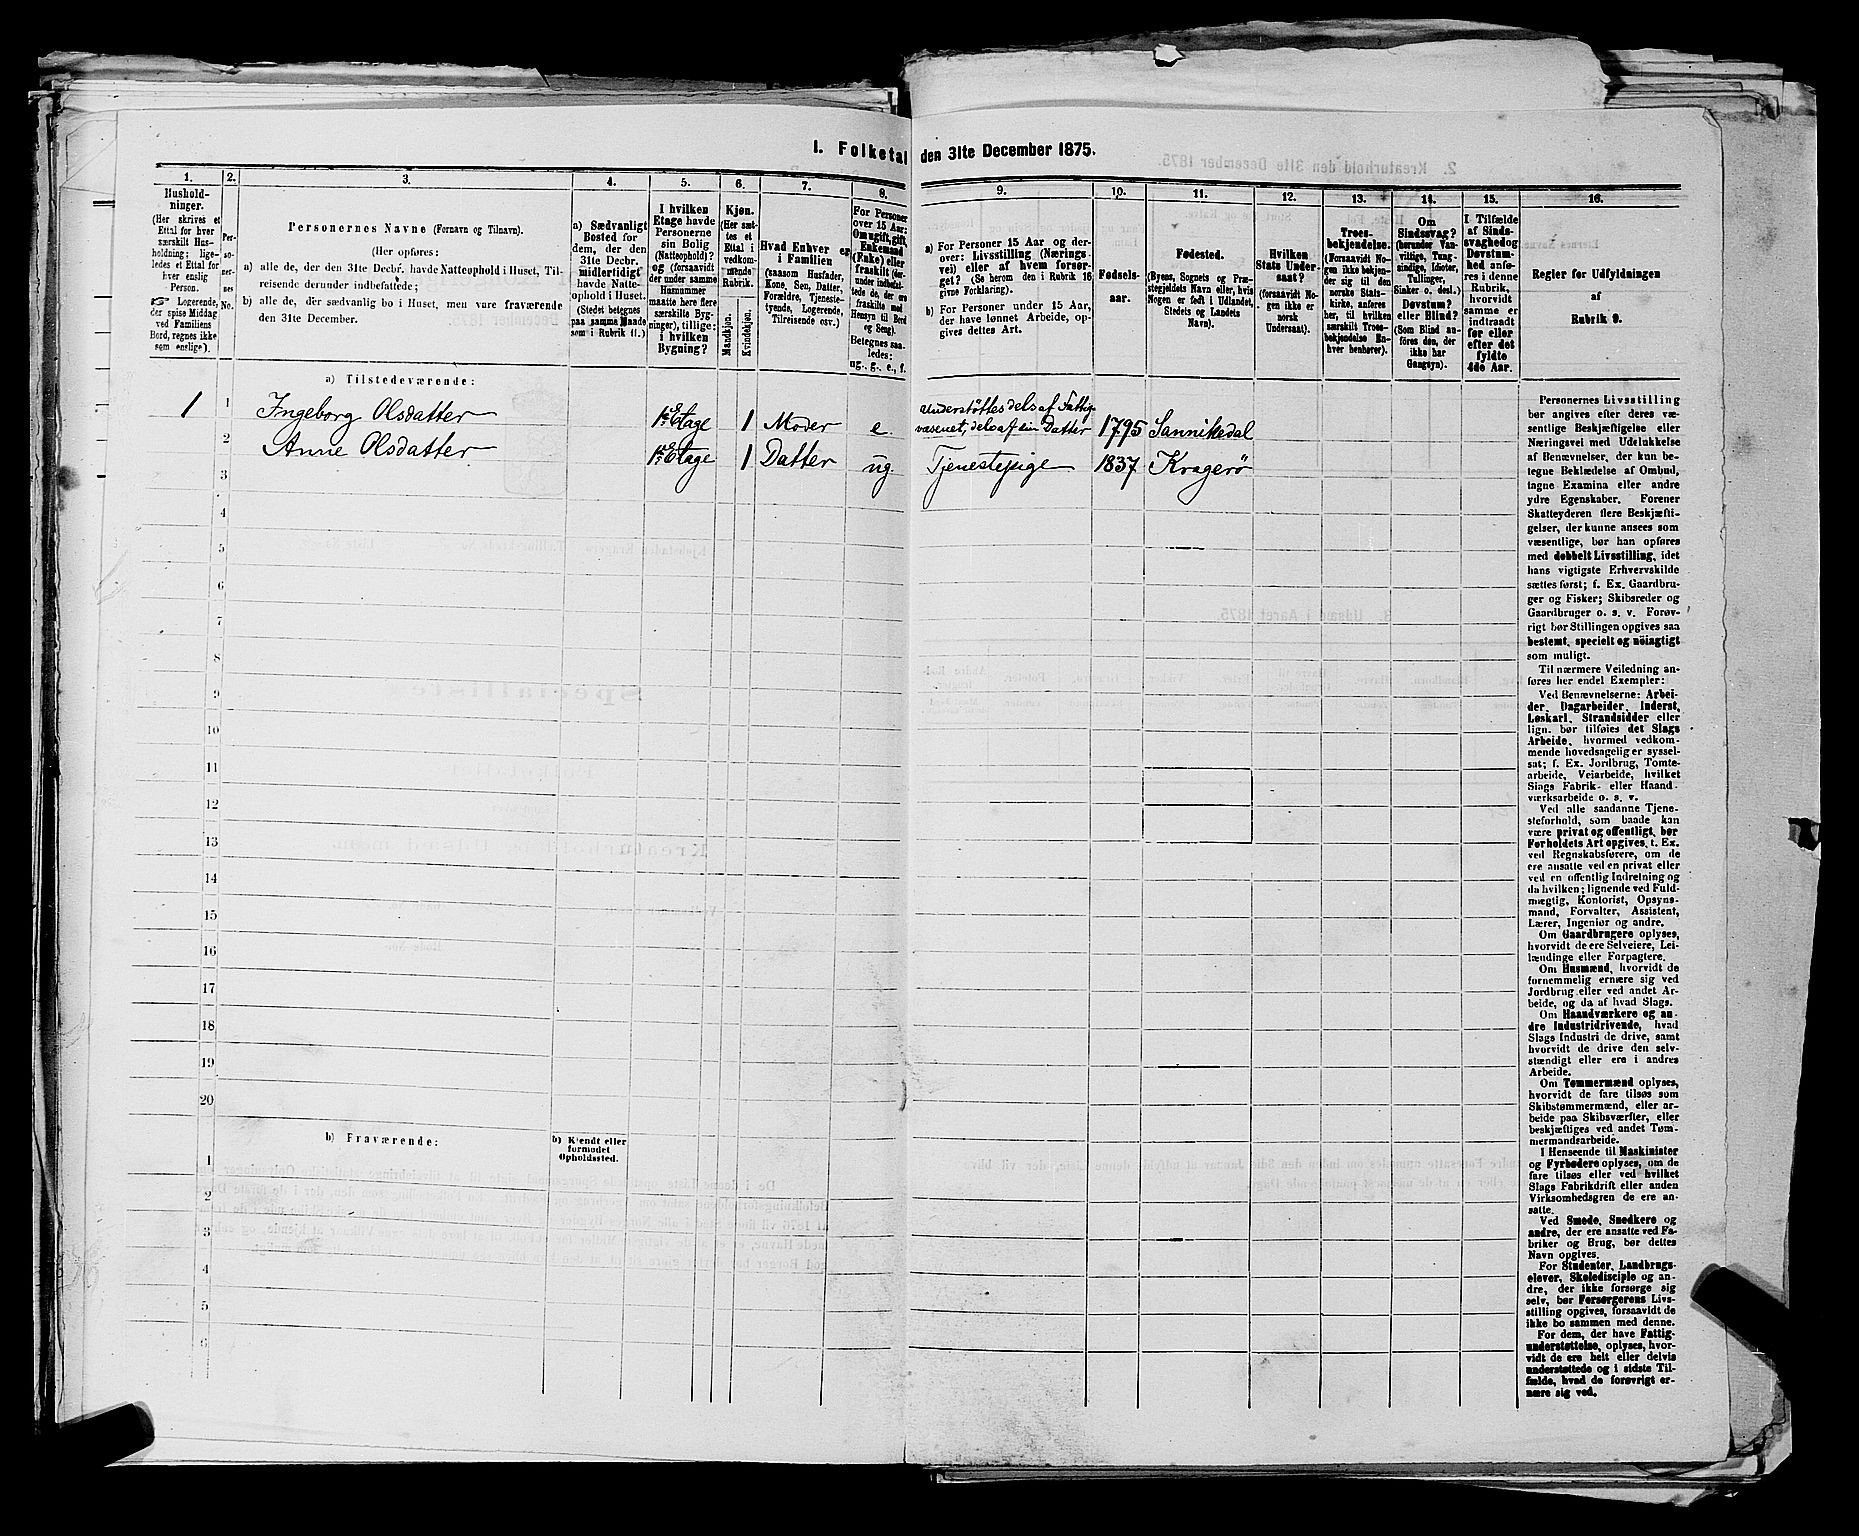 1. Folketal den 31te December 1875.
1. 2. 3. 4. 5. 6. 7. 8. 9. 10. 11. 12. 13. 14. 15. 16.
Hushold-
ninger.
(Her skrives et
Ettal for hver
særskilt Hus-
holdning; lige-
ledes et Ettal for
hver enslig
Person.
☞ Logerende,
der spise Middag
ved Familiens
Bord, regnes ikke
som enslige).
Per-
so-
ner-
nes
No.
Personernes Navne (Fornavn og Tilnavn).
(Her opføres:
a) alle de, der den 31te Decbr. havde Natteophold i Huset, Til-
reisende derunder indbefattede;
b) alle de, der sædvanlig bo i Huset, men vare fraværende
den 31te December.
a) Sædvanligt
Bosted for
dem, der den
31te Decbr.
midlertidigt
havde Natte-
ophold i Huset.
(Stedet betegnes
paa samme Maade
som i Rubrik 11.)
I hvilken
Etage havde
Personerne
sin Bolig
(Natteophold)?
og (forsaavidt
der under samme
Husnummer
maatte høre flere
særskilte Byg-
ninger), tillige:
i hvilken
Bygning?
Kjøn.
(Her sæt-
tes et
Ettal i
vedkom-
mende
Rubrik.
Mandkjøn.
Kvindekjøn.
Hvad Enhver er
i Familien
(saasom Husfader,
Kone, Søn, Datter,
Forældre, Tjeneste-
tyende, Logerende,
Tilreisende osv.)
For Personer
over 15 Aar:
Om ugift, gift,
Enkemand
(Enke) eller
fraskilt (der-
under indbefat-
tede de, der ere
fraskilte med
Hensyn til Bord
og Seng).
Betegnes saa-
ledes:
ug., g., e., f.
a) For Personer 15 Aar og der-
over: Livsstilling (Nærings-
vei) eller af hvem forsør-
get? (Se herom den i Rubrik 16
givne Forklaring).
b) For Personer under 15 Aar,
der have lønnet Arbeide, op-
gives dettes Art.
Fødsels-
aar.
Fødested.
(Byens, Sognets og Præ-
stegjeldets Navn eller, hvis
Nogen er født i Udlandet,
Stedets og Landets
Navn).
Hvilken
Stats Under-
saat?
(forsaavidt No-
gen ikke er
norsk
Undersaat).
Troes-
bekjendelse.
(Forsaavidt No-
gen ikke bekjen-
der sig til den
norske Stats-
kirke, anføres
her, til hvilken
særskilt Troes-
bekjendelse En-
hver henhører).
Om
Sindssvag?
(herunder Van-
vittige, Tung-
sindige, Idioter,
Tullinger,
Sinker o. desl.)
Døvstum?
eller Blind?
(Som Blind an-
føres den, der
ikke har
Gangsyn).
I Tilfælde
af Sinds-
svaghed og
Døvstum-
hed anfø-
res i denne
Rubrik,
hvorvidt
samme er
indtraadt
før eller
efter det
fyldte
4de Aar.
Regler for Udfyldningen
af
Rubrik 9.
a) Tilstedeværende:
1 1 Ingeborg Olsdatter 1te Etage 1 Moder e. Understøttes dels af Fattig-
væsenet, dels af sin Datter 1795 Sannikedal
2 Anne Olsdatter 1te Etage 1 Datter ug Tjenestepige 1837 Kragerø
3
4
5
6
7
8
9
10
11
12
13
14
15
16
17
18
19
20
b) Fraværende:
b) Kjendt eller
formodet
Opholdssted.
1
2
3
4
5
6
Personernes Livsstilling
bør angives efter deres væ-
sentlige Beskjæftigelse eller
Næringsvei med Udelukkelse
af Benævnelser, der kun be-
tegne Beklædelse af Ombud,
tagne Examina eller andre
ydre Egenskaber. Forener
Skatteyderen flere Beskjæfti-
gelser, der kunne ansees som
væsentlige, bør han opføres
med dobbelt Livsstilling, idet
hans vigtigste Erhvervskilde
sættes først; f. Ex. Gaardbru-
ger og Fisker; Skibsreder og
Gaardbruger o. s. v. Forøv-
rigt bør Stillingen opgives saa
bestemt, specielt og nøiagtigt
som muligt.
Til nærmere Veiledning an-
føres her endel Exempler:
Ved Benævnelserne: Arbei-
der, Dagarbeider, Inderst,
Løskarl, Strandsidder eller
lign. bør tilføies det Slags
Arbeide, hvormed vedkom-
mende hovedsagelig er syssel-
sat; f. Ex. Jordbrug, Tomte-
arbeide, Veiarbeide, hvilket
Slags Fabrik- eller Haand-
værksarbeide o. s. v.
Ved alle saadanne Tjene-
steforhold, som baade kan
være privat og offentligt, bør
Forholdets Art opgives, t. Ex.
ved Regnskabsførere, om de
ere ansatte ved en privat eller
ved en offentlig Indretning og
da hvilken; lignende ved Fuld-
mægtig, Kontorist, Opsyns-
mand, Forvalter, Assistent,
Lærer, Ingeniør og andre.
Om Gaardbrugere oplyses,
hvorvidt de ere Selveiere, Lei-
lændinge eller Forpagtere.
Om Husmænd, hvorvidt de
fornemmelig ernære sig ved
Jordbrug eller ved andet Ar-
beide, og da af hvad Slags.
Om Haandværkere og an-
dre Industridrivende, hvad
Slags Industri de drive, samt
hvorvidt de drive den selv-
stændigt eller ere i andres
Arbeide.
Om Tømmermænd oplyses,
hvorvidt de fare tilsøs som
Skibstømmermænd, eller ar-
beide paa Skibsværfter, eller
beskjæftiges ved andet Tøm-
mermandsarbeide.
I Henseende til Maskinister
og Fyrbødere oplyses, om de
fare tilsøs eller ved hvilket
Slags Fabrikdrift eller anden
Virksomhedsgren de ere an-
satte.
Ved Smede, Snedkere og
andre, der ere ansatte ved Fa-
briker og Brug, bør dettes
Navn opgives.
For Studenter, Landbrugs-
elever, Skoledisciple og an-
dre, der ikke forsørge sig
selv, bør Forsørgerens Livs-
stilling opgives, forsaavidt de
ikke bo sammen med denne.
For dem, der have Fattig-
understøttelse, oplyses, hvor-
vidt de ere helt eller delvis
understøttede og i sidste Til-
fælde, hvad de forøvrigt er-
nære sig ved.